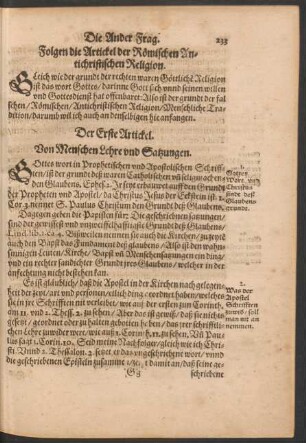 Die Ander Frag. 233
Folgen die Artickel der Römischen Antichristischen Religion.
GLeich wie der grundt der rechten waren Göttliche Religion
ist das wort Gottes / darinne Gott sich vnnd seinen willen
vnd Gottesdienst hat offenbaret: Also ist der grundt der fal
schen / Römischen / Antichristischen Religion / Menschliche Tra
dition / darumb wil ich auch an denselbigen hie anfangen.
Der Erste Artickel.
Von Menschen Lehre vnd Satzungen.
GOttes wort in Prophetischen vnd Apostolischen Schriff
ten / ist der grundt deß waren Catholischen
den Glaubens, Ephes. 2. Ir seyt erbawet auff den Grundt
der Propheten vnd Apostel / da Christus Jesus der Eckstein ist. 1.
Cor. 3. nennet S. Paulus Christum den Grundt deß Glaubens.
Dagegen geben die Papisten für: Die geschribnen satzungen /
sind der gewisest vnd
Bißweilen nennen sie auch die Kirchen / zugeyt
auch den Bapst das Fundament deß glaubens / Also ist den wahn
sinnigen leuten / Kirche / Bapst vñ Menschensatzungen ein ding /
vnd die rechte sandichter Grundt ires Glaubens / welcher in der
anfechtung nicht bestehen kan.
Es ist gläublich / daß die Apostel in der Kirchen nach gelegen
heit der zeyt / art vnd personen / etliche ding verordnet haben / welches
sie in der Schrifft
am 11. vnd 2. Thess. 2. zu sehen / Aber das ist gewiß / daß sie nichts
geleret / oder geordnet oder zu halten gebotten haben / das
Lehre zuwider were / wie auß 1. Corinth. 11. zu sehen, Vñ Pau
lus sagt 1. Corin. 10. Seid meine Nachfolger / gleich wie ich Chri-
sti. Vnnd 2. Thessalon. 2. setzet er das vngeschriebene wort / vnnd
die geschriebenen Episteln zusamme
Gg schriebene
1.
Gottes
Wort, vnd
Christus
deß
Glaubens
grunde.
2.
Was der
Apostel
Schrifften
gewis / soll
man mit an
nemmen.